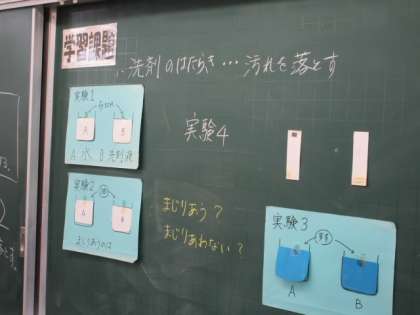 学習課題
洗剤のはたらき…汚れを落とす
実験1
A
B
A 水 B 洗剤液
実験4
実験2
A
B
まじりあうのは
まじりあう？
まじりあわない？
実験3
A
B